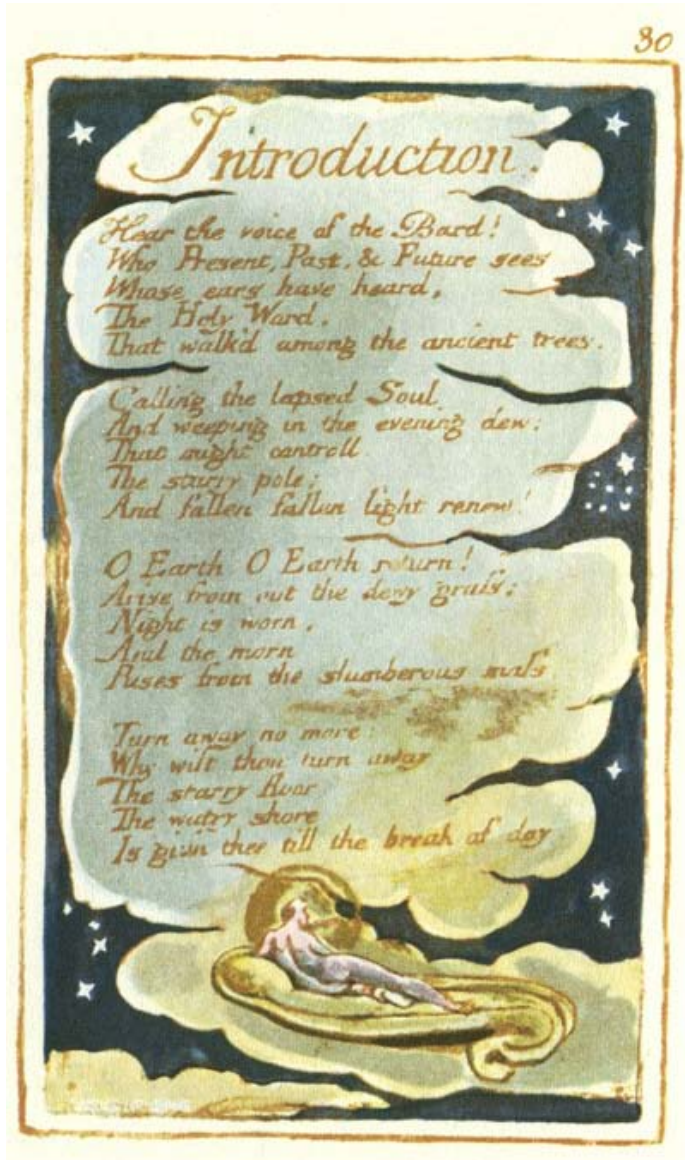 30
Introduction.
Hear the voice of the Bard!
Who Present, Past, & Future sees
Whose ears have heard,
The Holy Word,
That walk'd among the ancient trees.
Calling the lapsed Soul
And weeping in the evening dew:
That might controll
The starry pole;
And fallen fallen light renew!
O Earth O Earth return!
Arise from out the dewy grass;
Night is worn,
And the morn
Rises from the slumberous mass
Turn away no more:
Why wilt thou turn away
The starry floor
The watry shore
Is giv'n thee till the break of day